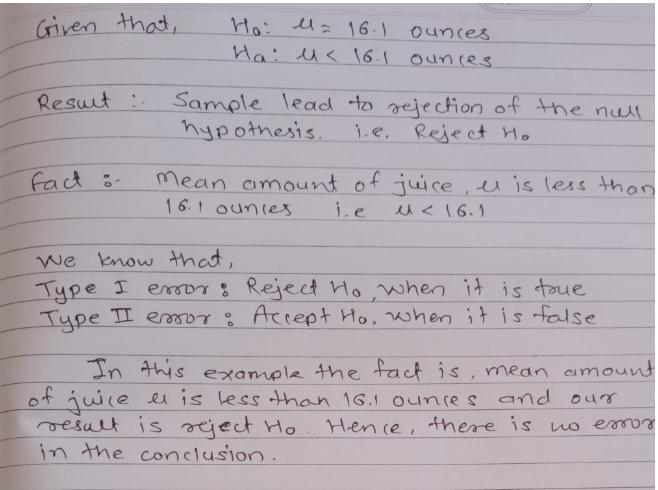 Given that, Ho: μ = 16.1 ounces
Ha: μ < 16.1 ounces
Result :- Sample lead to rejection of the null
hypothesis. i.e. Reject Ho
Fact :- Mean amount of juice, μ is less than
16.1 ounces i.e μ < 16.1
We know that,
Type I error : Reject Ho, when it is true
Type II error : Accept Ho, when it is false
In this example the fact is, mean amount
of juice μ is less than 16.1 ounces and our
result is reject Ho. Hence, there is no error
in the conclusion.